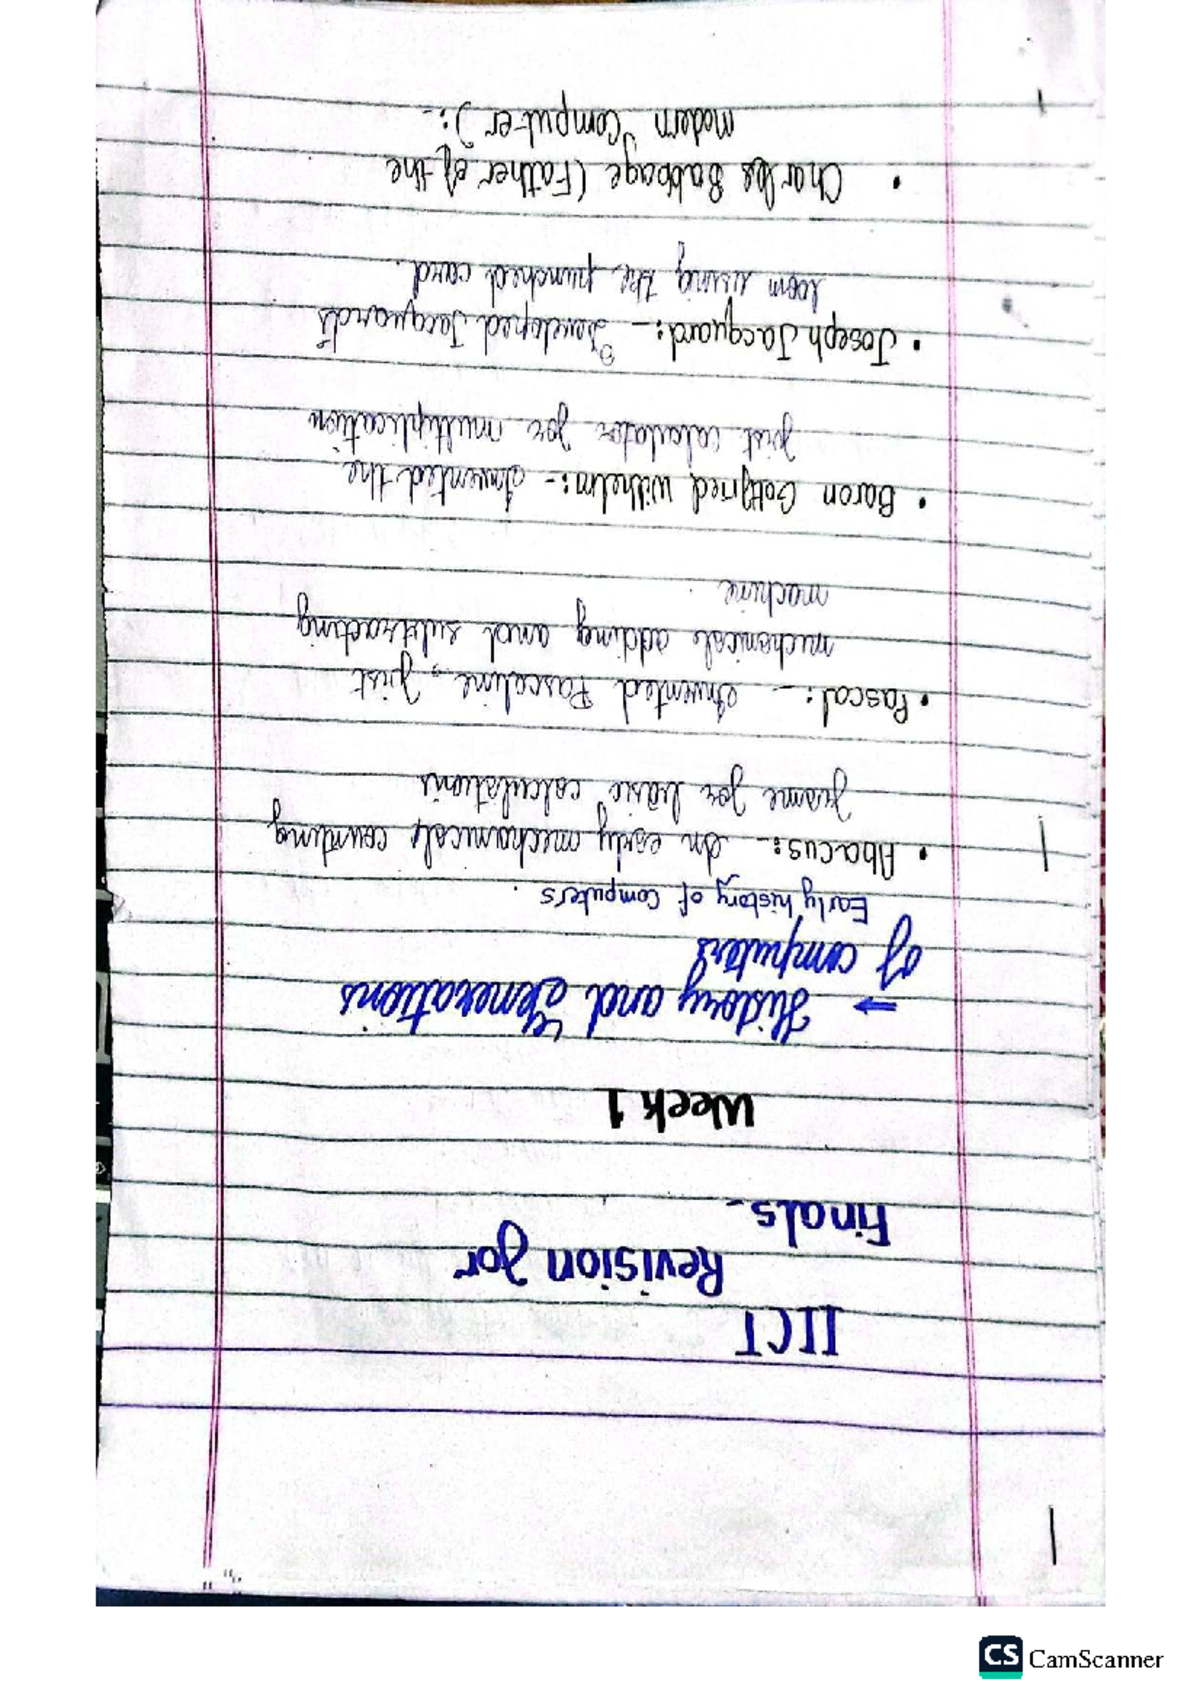 IICT
Revision for
Finals.
Week 1
→ History and Generations
of computers
Early history of Computers.
• Abacus:- An early mechanical counting
frame for basic calculations
• Pascal:- Invented Pascaline, first
mechanical adding and subtracting
machine.
• Baron Gottfried wilhelm:- Invented the
first calculator for multiplication
• Joseph Jacquard:- Developed Jacquard's
loom using the punched card.
• Charles Babbage (Father of the
modern Computer):-
CS CamScanner